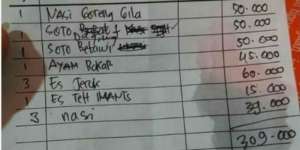 1 Nasi Goreng Gila 50.000
1 SOTO 50.000
1 SOTO Betawi 50.000
1 AYAM BAKAR 45.000
3 Es Jeruk 60.000
1 Es Teh MANIS 15.000
3 nasi 39.000
309.000